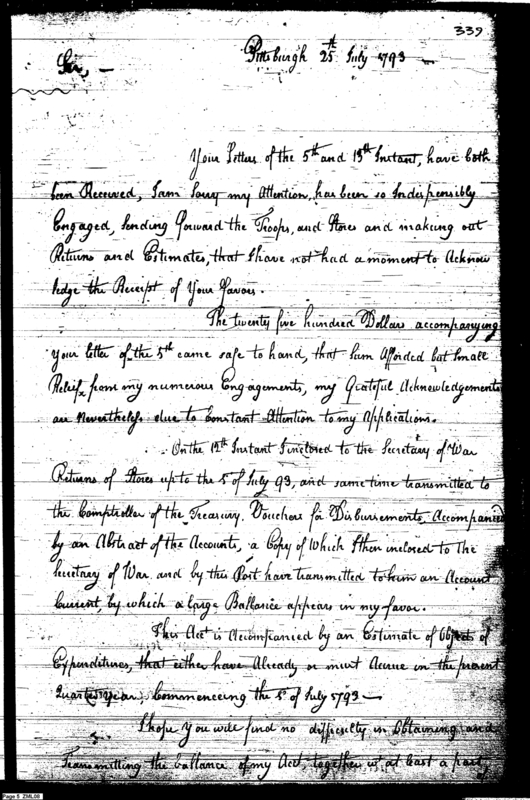 339
Pittsburgh 25th July 1793
Sir, —
Your Letters of the 5th and 13th Instant, have both
been Received, I am Sorry my Attention, has been so Indespensibly
Engaged, Sending forward the Troops, and Stores and making out
Returns and Estimates, that I have not had a moment to Acknow
ledge the Receipt of Your favors.
The twenty five hundred Dollars accompanying
your letter of the 5th came safe to hand, that Sum Afforded but Small
Relief from my numerous Engagements, my Grateful Acknowledgements
are Nevertheless due to Constant Attention to my Applications.
On the 12th Instant I inclosed to the Secretary of War
Returns of Stores up to the 5 of July 93, and same time transmitted to
the Comptroller of the Treasury, Vouchers for Disbursements Accompanied
by an Abstract of the Accounts, a Copy of Which I then inclosed to the
Secretary of War, and by this Post have transmitted to him an Account
Current, by which a large Ballance appears in my favor.
This Acct is Accompanied by an Estimate of Objects of
Expenditures, that either have Already or must Accrue in the present
Quarter Year, Commenceing the 5th of July 1793 —
I hope You will find no difficulty in Obtaining and
Transmitting the ballance of my Acct together wt at least a part
of
Page 5 ZML08